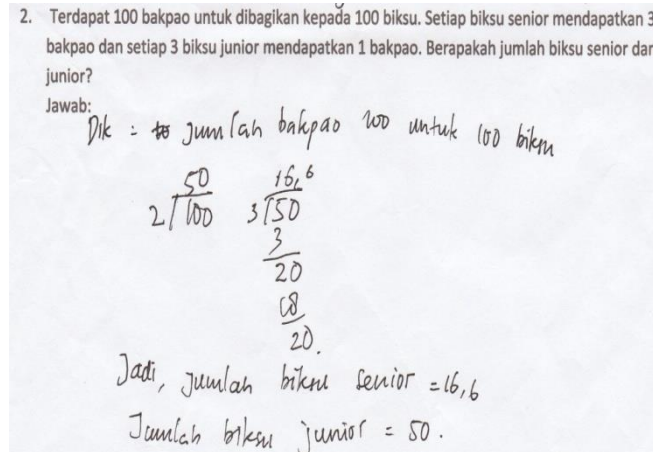 2. Terdapat 100 bakpao untuk dibagikan kepada 100 biksu. Setiap biksu senior mendapatkan 3
bakpao dan setiap 3 biksu junior mendapatkan 1 bakpao. Berapakah jumlah biksu senior dan
junior?
Jawab:
Dik : Jumlah bakpao 100 untuk 100 biksu
50 16,6
2/100 3/50
3
20
18
20.
Jadi, Jumlah biksu senior = 16,6
Jumlah biksu junior = 50.